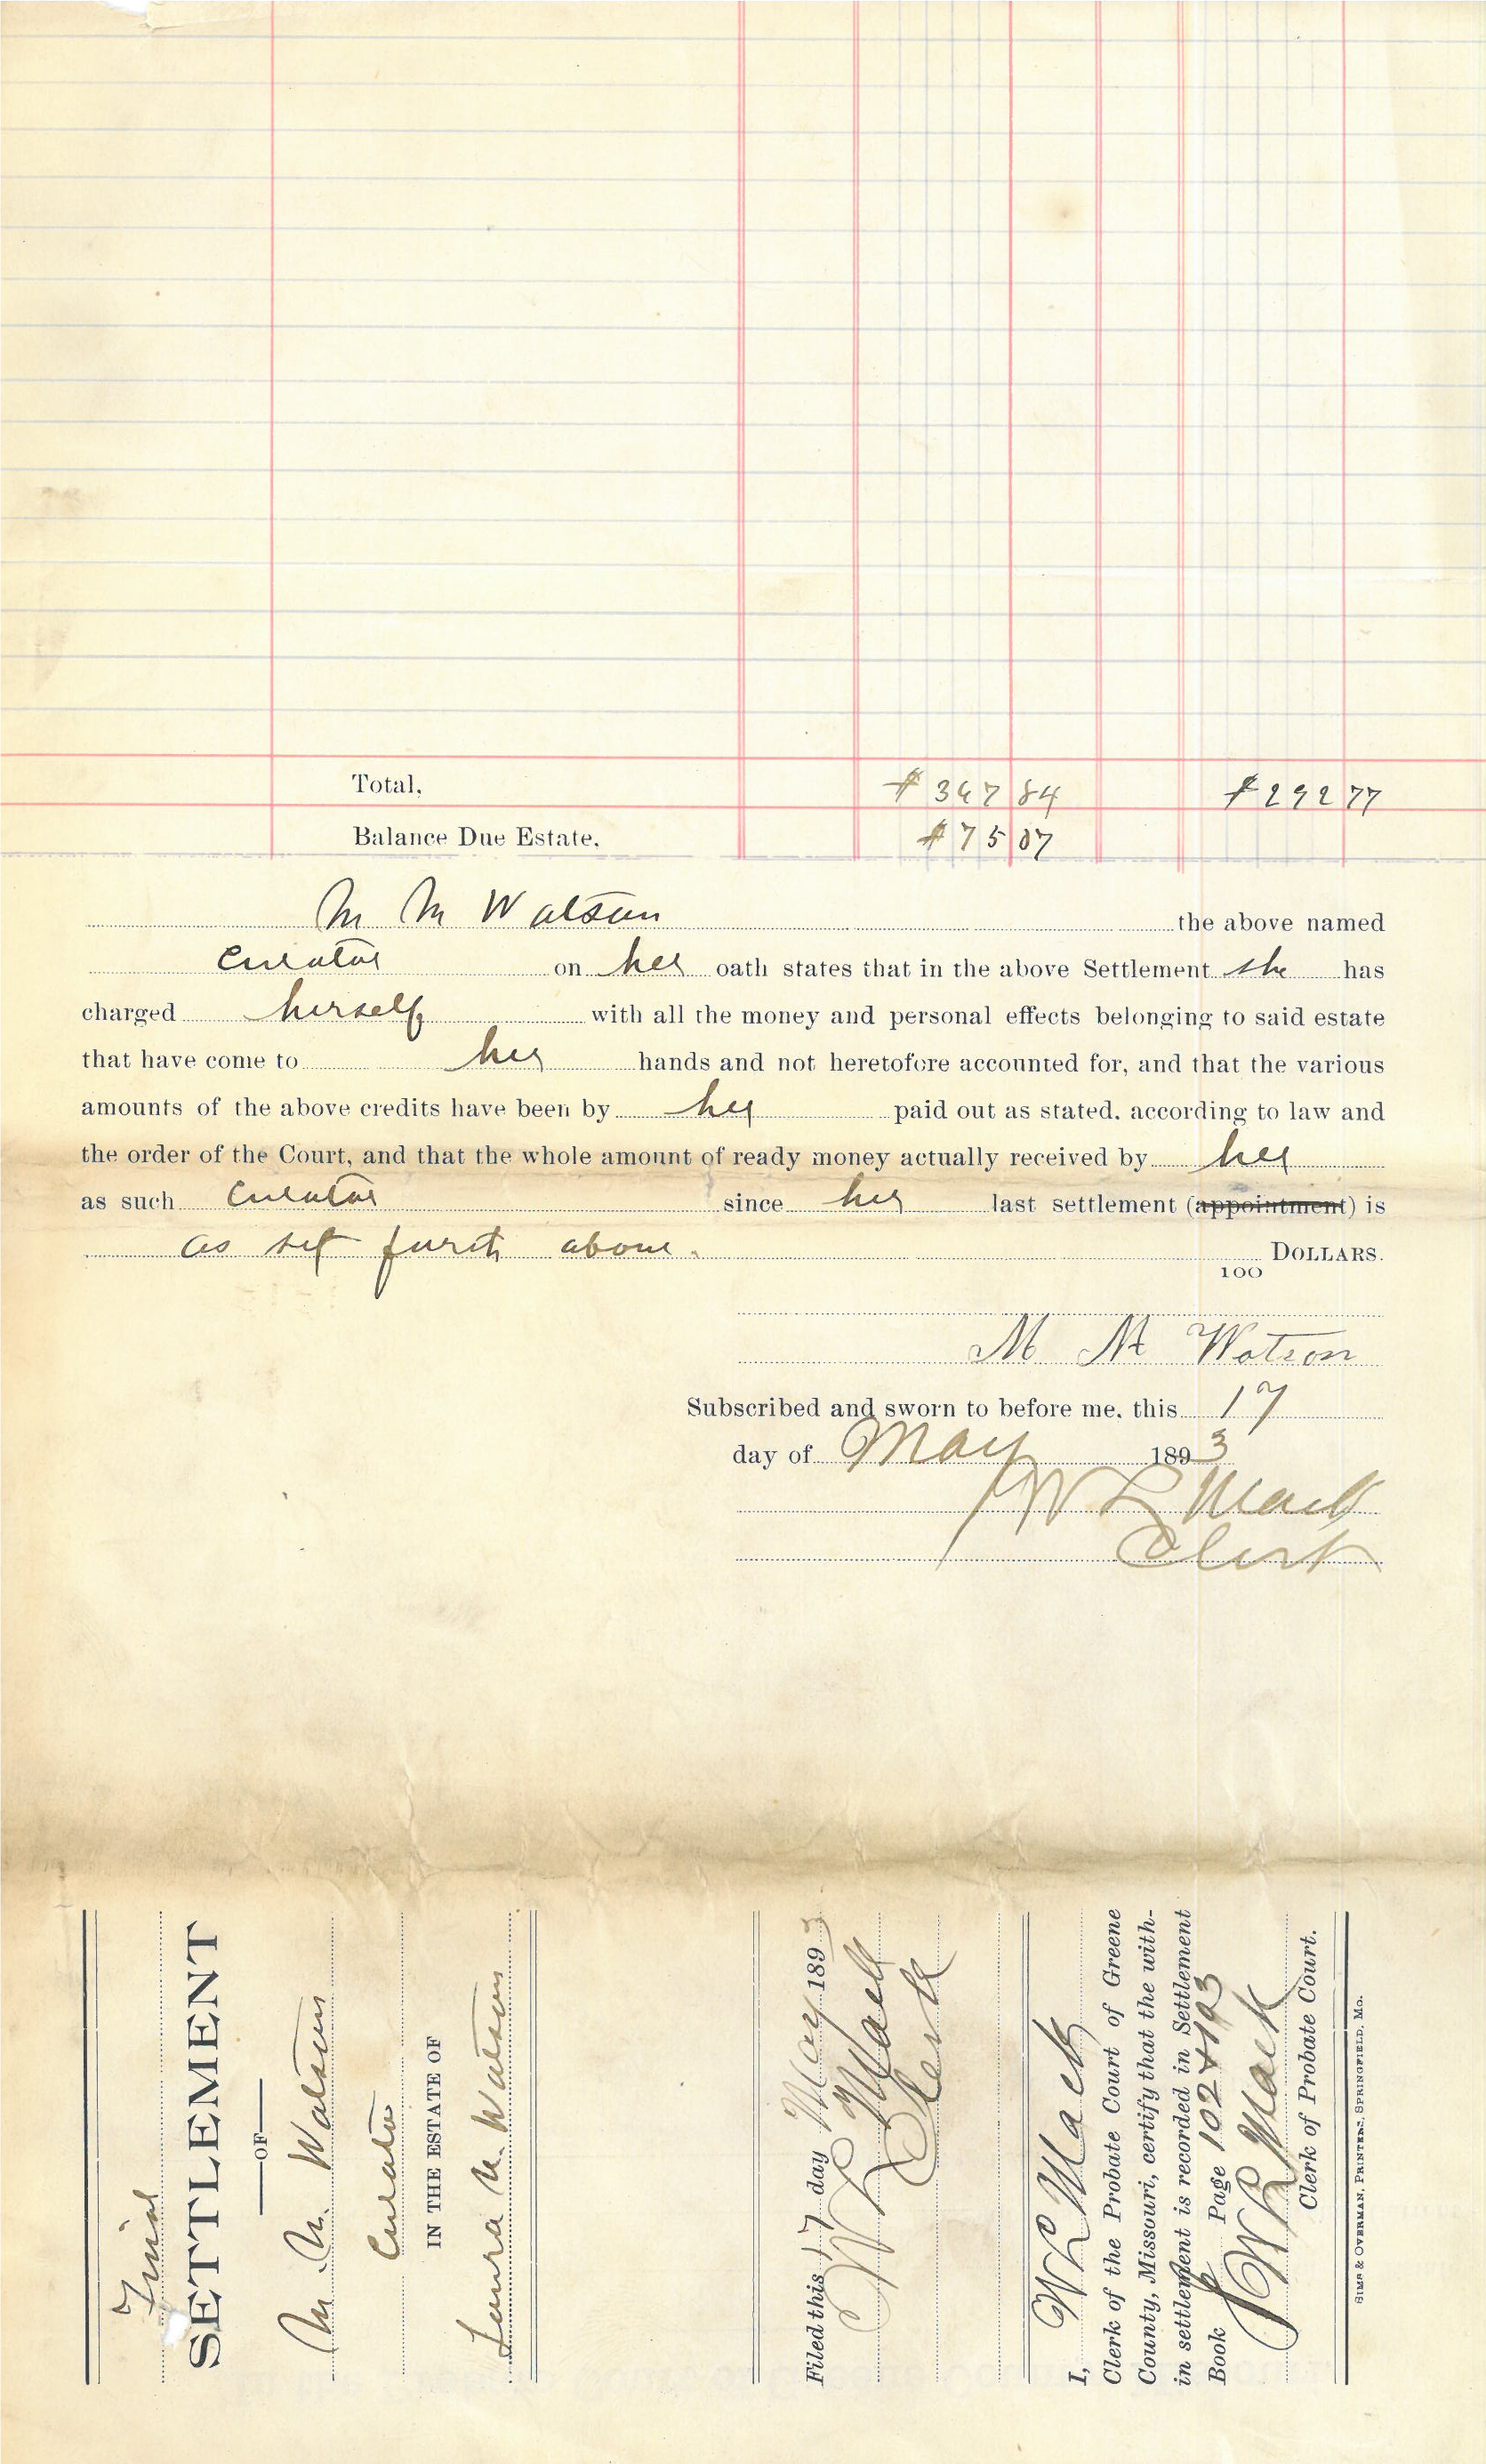 Total, $367 84 $292 77
Balance Due Estate, $75 07
M M Watson the above named
Curator on her oath states that in the above Settlement she has
charged herself with all the money and personal effects belonging to said estate
that have come to her hands and not heretofore accounted for, and that the various
amounts of the above credits have been by her paid out as stated, according to law and
the order of the Court, and that the whole amount of ready money actually received by her
as such Curator since her last settlement (appointment) is
as set forth above. 100 DOLLARS.
M M Watson
Subscribed and sworn to before me, this 17
day of May 1893
W L Mack
Clerk
Final
SETTLEMENT
OF
M. M. Watson
Curator
IN THE ESTATE OF
Laura Watson
Filed this 17 day May 1893
W L Mack
Clerk
I, W L Mack
Clerk of the Probate Court of Greene
County, Missouri, certify that the with-
in settlement is recorded in Settlement
Book Page 102 &
W L Mack
Clerk of Probate Court.
SIMS & OVERMAN, PRINTERS, SPRINGFIELD, MO.